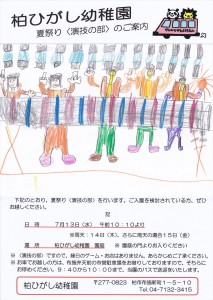 柏ひがし幼稚園
夏祭り〈演技の部〉のご案内
下記のとおり、夏祭り〈演技の部〉を行います。ご入園を検討されている方、ぜひ
お越しください。
記
日 時 7月13日(水) 午前10:10より
※雨天:14日(木)、さらに雨天の場合15日(金)
場 所 柏ひがし幼稚園 園庭 ※園庭の門よりお入りください
※〈演技の部〉ですので、縁日のゲーム・お店はありません。あらかじめご了承ください。
※お車でお越しの方は、布施弁天前の市営駐車場をお借りしておりますので、そちらに
お停めください。9:40から10:00まで、当園のバスで送迎をいたします。
柏ひがし幼稚園
〒277-0823 柏市布施新町1-5-10
Tel.04-7132-3415